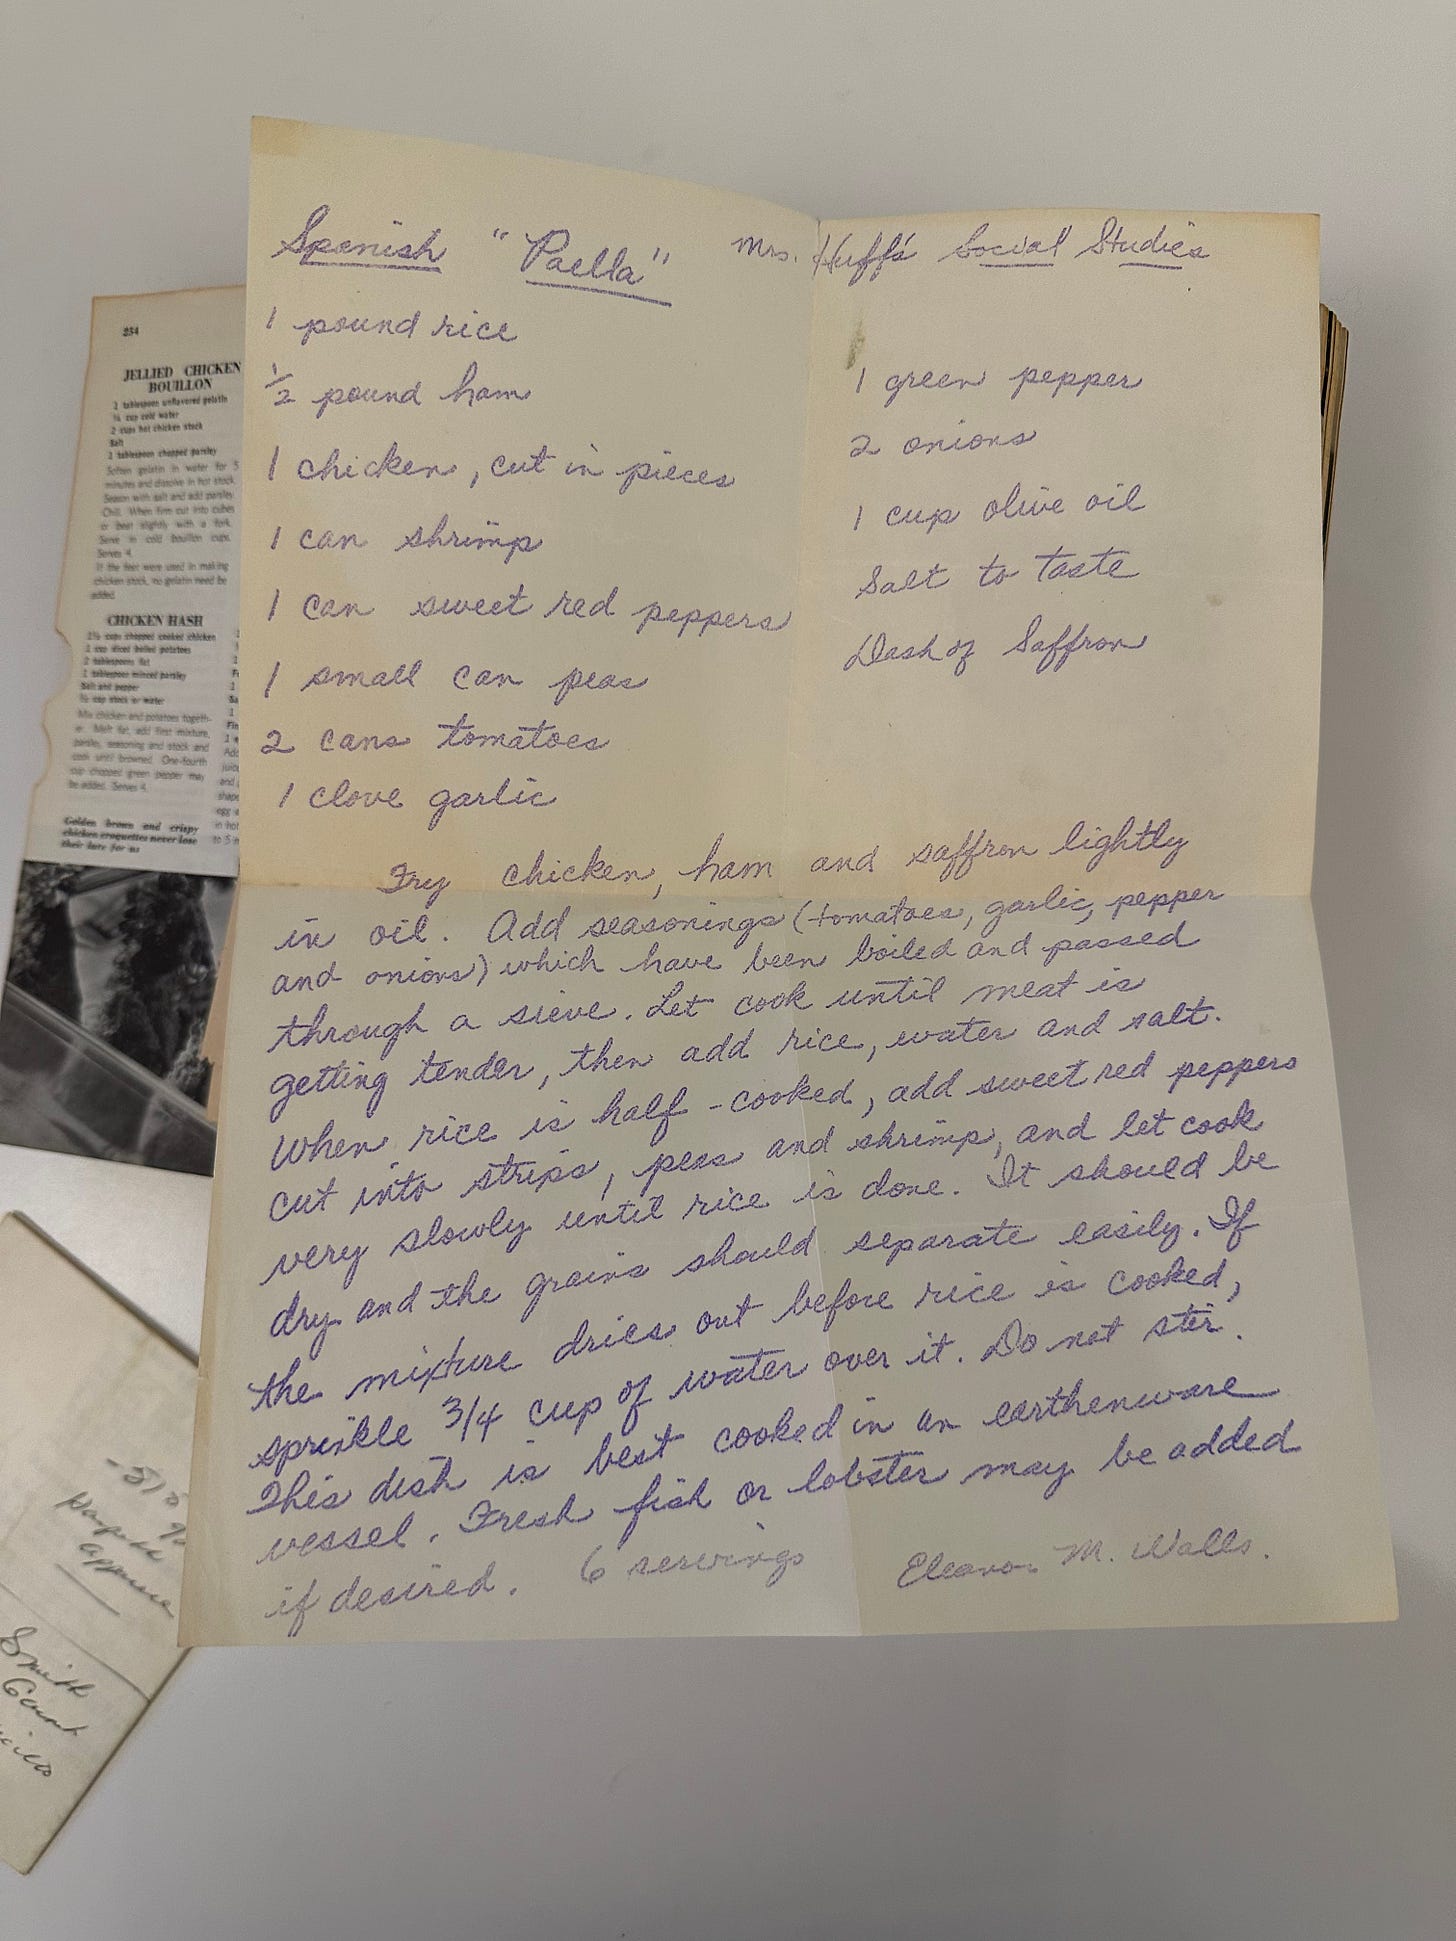 Spanish "Paella"
Mrs. Huff's Social Studies
1 pound rice
1/2 pound ham
1 chicken, cut in pieces
1 can shrimp
1 can sweet red peppers
1 small can peas
2 cans tomatoes
1 clove garlic
1 green pepper
2 onions
1 cup olive oil
Salt to taste
Dash of Saffron
Fry chicken, ham and saffron lightly
in oil. Add seasonings (tomatoes, garlic, pepper
and onions) which have been boiled and passed
through a sieve. Let cook until meat is
getting tender, then add rice, water and salt.
When rice is half-cooked, add sweet red peppers
cut into strips, peas and shrimp, and let cook
very slowly until rice is done. It should be
dry and the grains should separate easily. If
the mixture dries out before rice is cooked,
sprinkle 3/4 cup of water over it. Do not stir.
This dish is best cooked in an earthenware
vessel. Fresh fish or lobster may be added
if desired. 6 servings
Eleanor M. Walls.
234
JELLIED CHICKEN
BOUILLON
2 tablespoons unflavored gelatin
1/4 cup cold water
2 cups hot chicken stock
Salt
2 tablespoons chopped parsley
Soften gelatin in water for 5
minutes and dissolve in hot stock.
Season with salt and add parsley.
Chill. When firm cut into cubes
or beat slightly with a fork.
Serve in cold bouillon cups.
Serves 4.
If the feet were used in making
chicken stock, no gelatin need be
added.
CHICKEN HASH
cups chopped cooked chicken
cup diced boiled potatoes
2 tablespoons fat
1 tablespoon minced parsley
Salt and pepper
cup stock or water
Mix chicken and potatoes togeth-
er. Melt fat, add first mixture,
parsley, seasoning and stock and
cook until browned. One-fourth
cup chopped green pepper may
be added. Serves 4.
Golden brown and crispy
chicken croquettes never lose
their lure for us
Smith